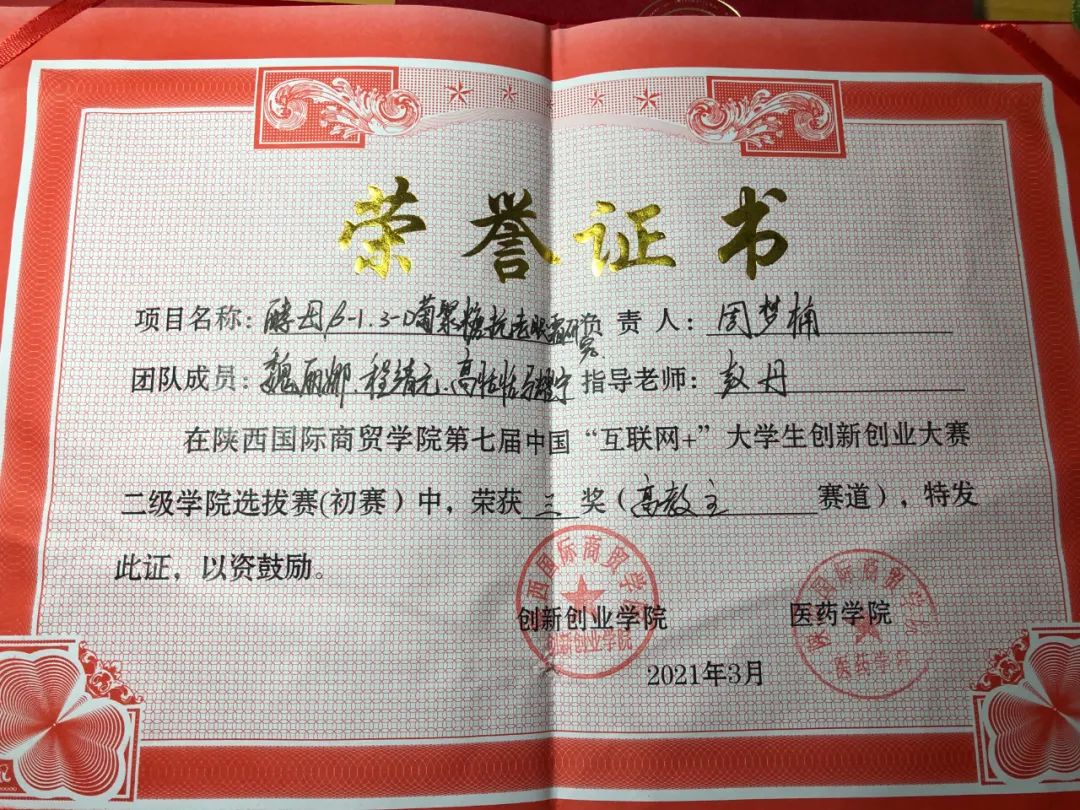 荣誉证书
项目名称：酵母β-1.3-D葡聚糖抗去眼霜研究 负责人：周梦楠
团队成员：魏丽娜.程靖元.高恬恬 指导老师：赵丹
在陕西国际商贸学院第七届中国“互联网+”大学生创新创业大赛
二级学院选拔赛(初赛）中，荣获三奖（高教主赛道），特发
此证，以资鼓励。
陕西国际商贸学院
创新创业学院
创新创业学院
陕西国际商贸学院
医药学院
医药学院
2021年3月